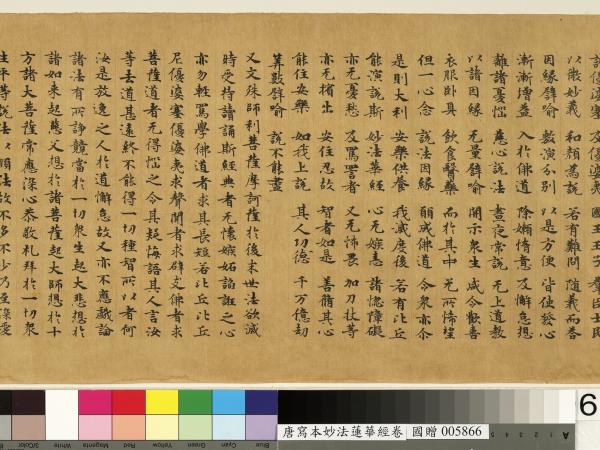 諸優婆塞 及優婆夷 國王王子 羣臣士民
以微妙義 和顏為說 若有難問 隨義而答
因緣譬喻 敷演分別 以是方便 皆使發心
漸漸增益 入於佛道 除嬾惰意 及懈怠想
離諸憂惱 慈心說法 晝夜常說 无上道教
以諸因緣 无量譬喻 開示衆生 咸令歡喜
衣服臥具 飲食醫藥 而於其中 无所悕望
但一心念 說法因緣 願成佛道 令衆亦尒
是則大利 安樂供養 我滅度後 若有比丘
能演說斯 妙法華經 心无嫉恚 諸惱障礙
亦无憂愁 及罵詈者 又无怖畏 加刀杖等
亦无擯出 安住忍故 智者如是 善脩其心
能住安樂 如我上說 其人功德 千万億劫
筭數譬喻 說不能盡
又文殊師利菩薩摩訶薩於後末世法欲滅
時受持讀誦斯經典者无懷嫉妬諂誑之心
亦勿輕罵學佛道者求其長短若比丘比丘
尼優婆塞優婆夷求聲聞者求辟支佛者求
菩薩道者无得惱之令其疑悔語其人言汝
等去道甚遠終不能得一切種智所以者何
汝是放逸之人於道懈怠故又亦不應戲論
諸法有所諍競當於一切衆生起大悲想於
諸如來起慈父想於諸菩薩起大師想於十
方諸大菩薩常應深心恭敬礼拜於一切衆
生平等說法以順法故不多不少乃至深愛
3/Color
White
Magenta
Red
Yellow
Green
Cyan
Blue
唐寫本妙法蓮華經卷 國贈 005866
A
6